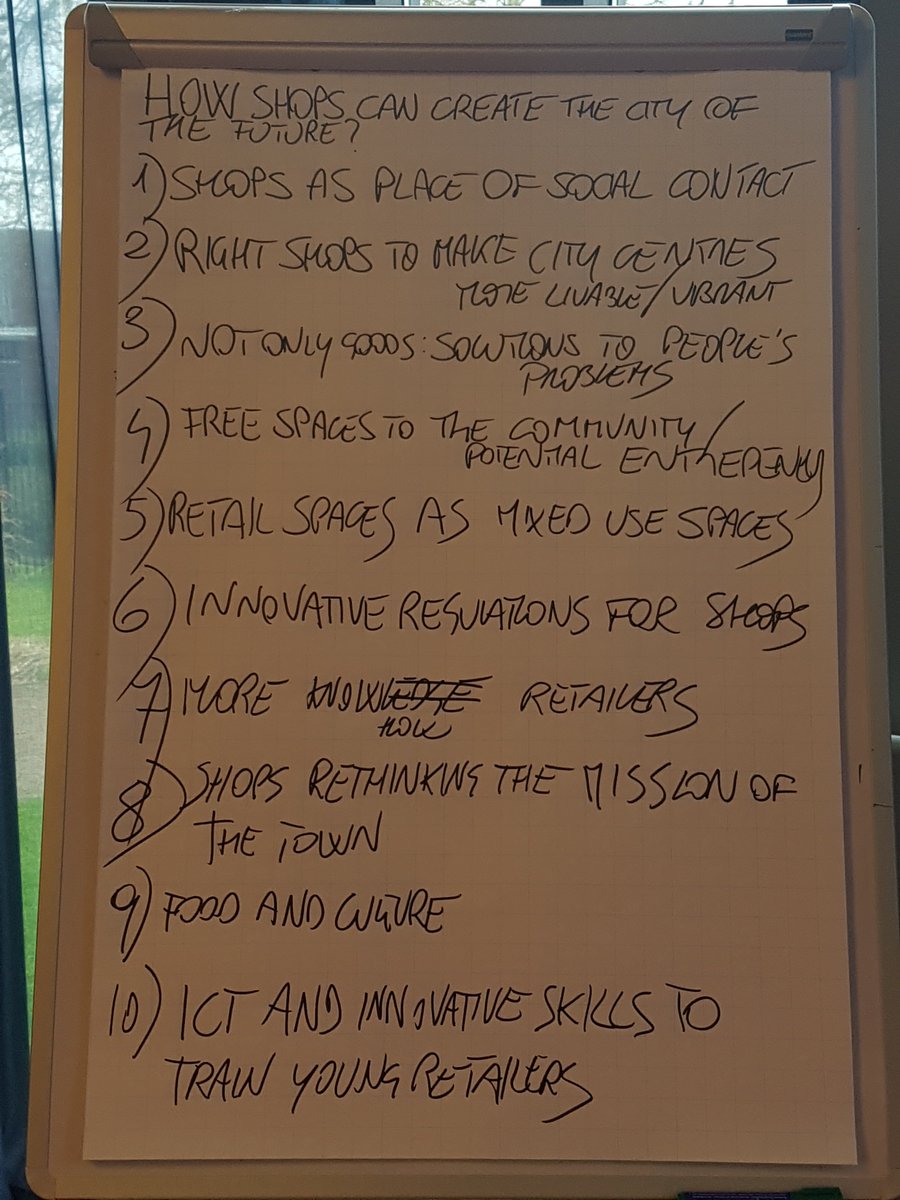 HOW SHOPS CAN CREATE THE CITY OF
THE FUTURE?
1) SHOPS AS PLACE OF SOCIAL CONTACT
2) RIGHT SHOPS TO MAKE CITY CENTRES
MORE LIVABLE/VIBRANT
3) NOT ONLY GOODS: SOLUTIONS TO PEOPLE'S
PROBLEMS
4) FREE SPACES TO THE COMMUNITY/
POTENTIAL
5) RETAIL SPACES AS MIXED USE SPACES
6) INNOVATIVE REGULATIONS FOR SHOPS
7) MORE KNOW RETAILERS
HOW
8) SHOPS RETHINKING THE MISSION OF
THE TOWN
9) FOOD AND CULTURE
10) ICT AND INNOVATIVE SKILLS TO
TRAIN YOUNG RETAILERS